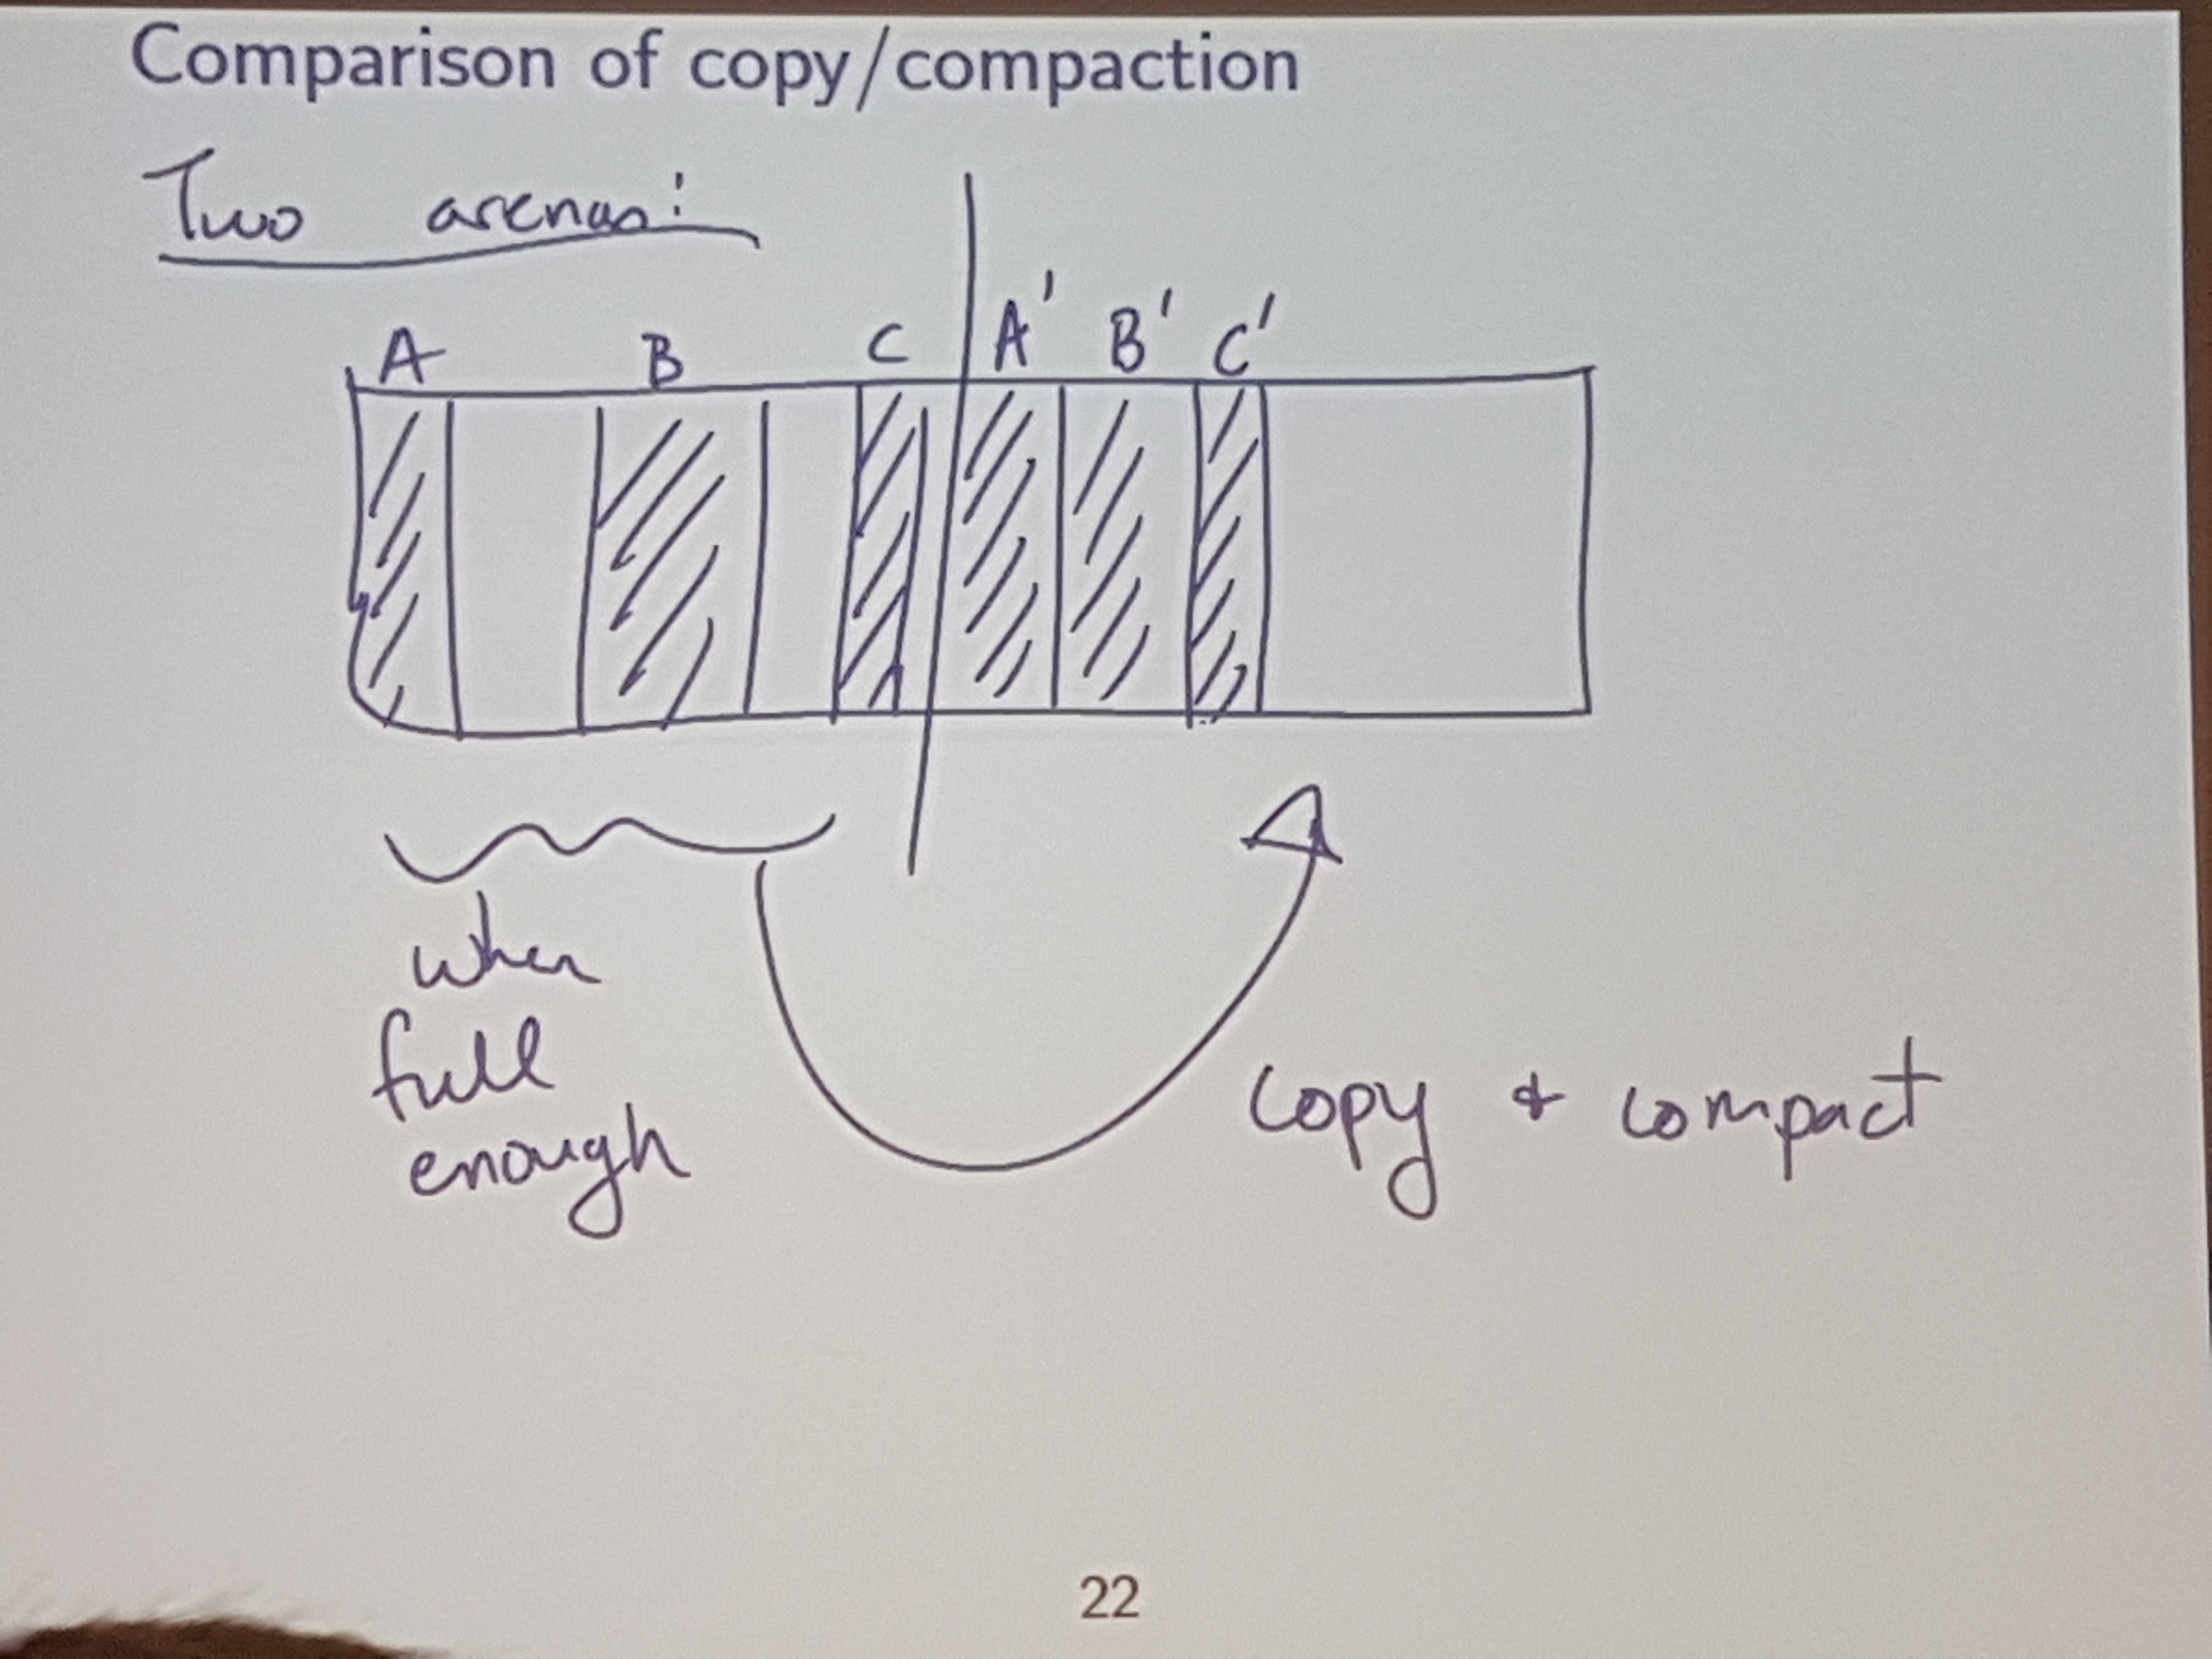 Comparison of copy/compaction
Two arenas:
A B C A' B' C'
when
full
enough
copy + compact
22